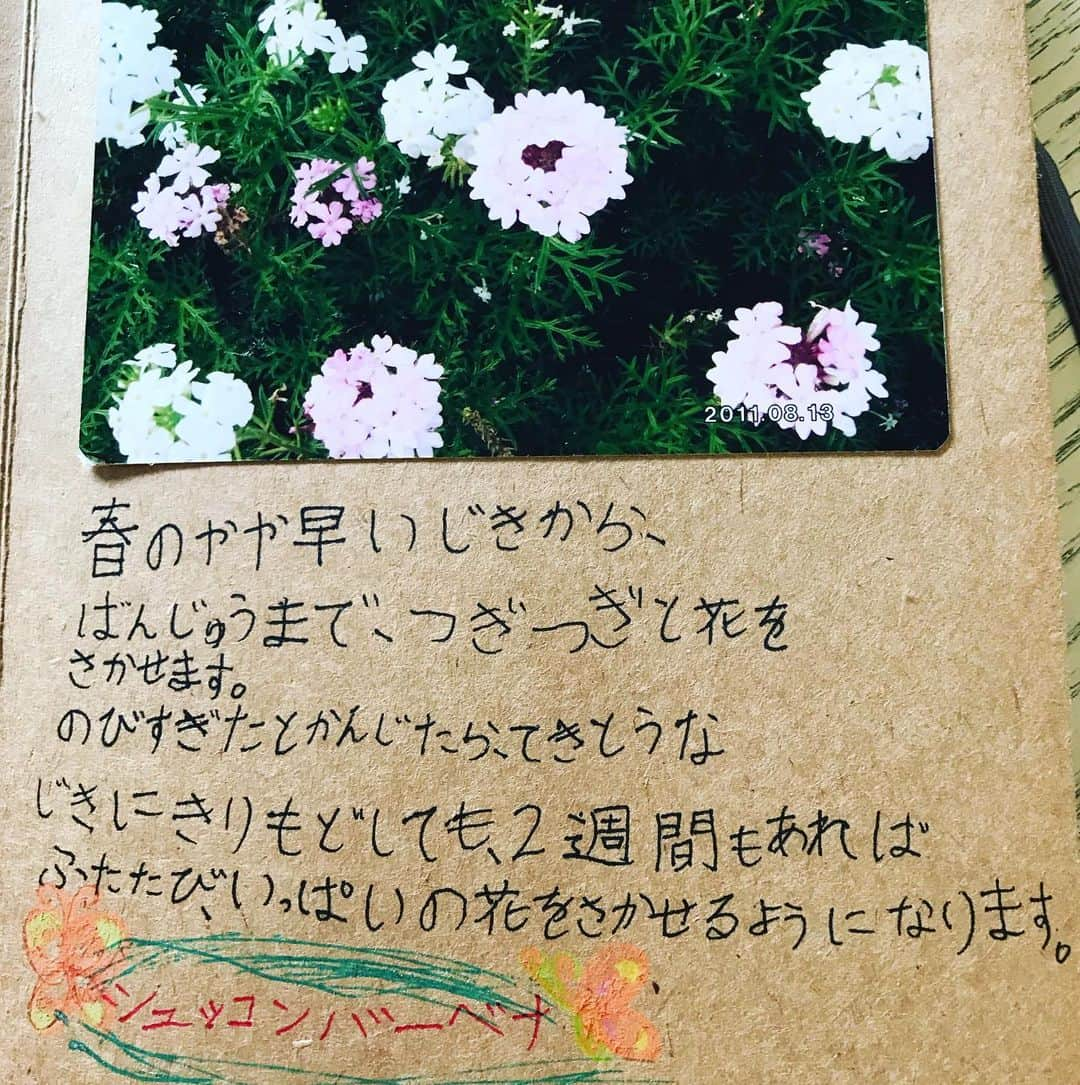 2011.08.13
春のやや早いじきから、
ばんじゅうまで、つぎつぎと花を
さかせます。
のびすぎたとかんじたら、てきとうな
じきにきりもどしても、2週間もあれば
ふたたび、いっぱいの花をさかせるようになります。
シュッコンバーベナ